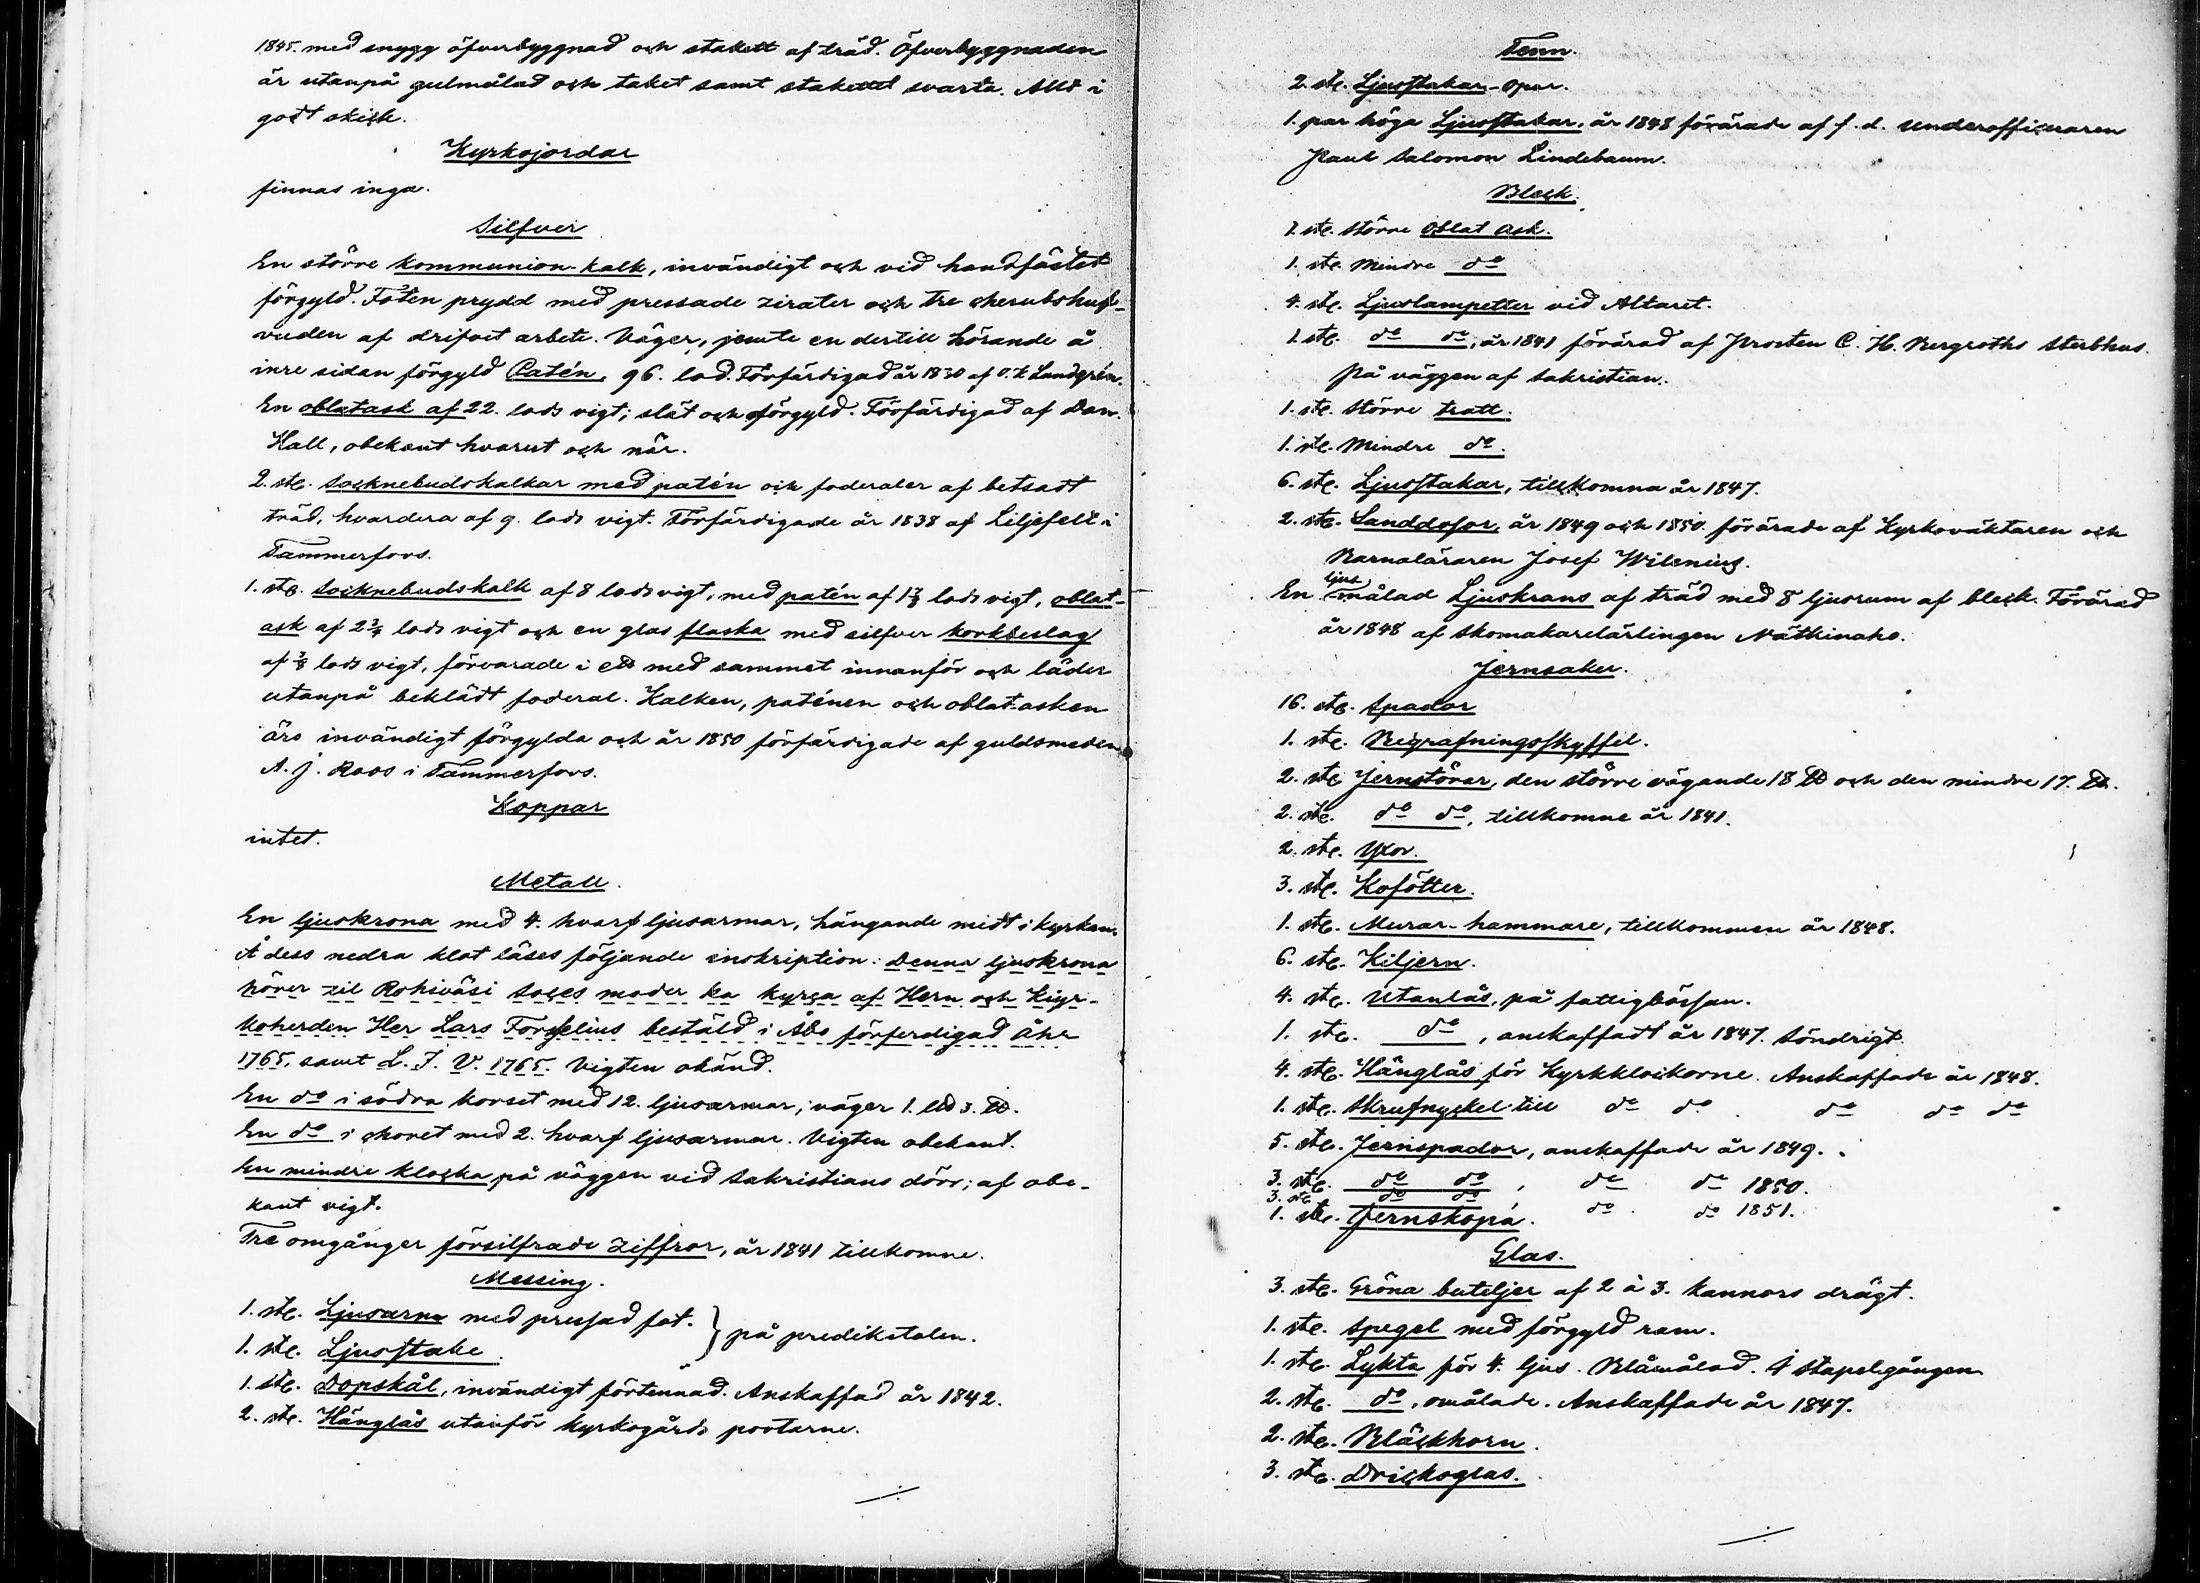 1845. med snygg öfverbyggnad och stakett af träd. Öfverbyggnaden
är utanpå gulmålad och taket samt stakettet svarta. Allt i
godt skick.
Kyrkojordar
finnas inga.
Silfver
En större kommunion-kalk, invändigt och vid handfästet
förgyld. Foten prydd med pressade zirater och tre cherubshuf-
vuden af drifvet arbete. Väger, jemte en dertill hörande å
inre sidan förgyld Patén, 96. lod. Förfärdigad år 1830 af Landgrén.
En oblatask af 22. lods vigt; slät och oförgyld. Förfärdigad af Dan.
Hall, obekant hvarest och när.
2. ste. Socknebudskalkar med patén och foderaler af betsadt
träd, hvardera af 9. lods vigt. Förfärdigade år 1838 af Liljefelt i
Tammerfors.
1. ste. Socknebudskalk af 8 lods vigt, med patén af 1⅞ lods vigt, oblat-
ask af 2¾ lods vigt och en glas flaska med silfver korkbeslag
af ⅞ lods vigt, förvarade i ett med sammet innanför och läder
utanpå beklädt foderal. Kalken, paténen och oblat-asken
äro invändigt förgylda och år 1850 förfärdigade af guldsmeden
A. J. Roos i Tammerfors.
Koppar
intet.
Metall.
En ljuskrona med 4. hvarf ljusarmar, hängande midt i kyrkan.
Å dess nedra klot läses följande inskription: Denna ljuskrona
hörer til Rohiväsi Soces moder ka kyrca af Hern och Kiyr-
koherden Her Lars Forselius bestäld i Åbo förferdigad Åhr
1765. samt L. F. V. 1765. Vigten okänd.
En do i södra korset med 12. ljusarmar; väger 1. L℔ 3. ℔.
En do i choret med 2. hvarf ljusarmar. Vigten obekant.
En mindre klocka på väggen vid Sakristians dörr; af obe-
kant vigt.
Tre omgånger försilfrade Ziffror, år 1841 tillkomne.
Messing.
1. ste. Ljusarm med pressad fot. } på predikstolen.
1. ste. Ljusstake.
1. ste. Dopskål, invändigt förtennad. Anskaffad år 1842.
2. ste. Hänglås utanför kyrkogårds portarne.
Tenn.
2. ste. Ljusstakar-opar.
1. par höga Ljusstakar, år 1848 förärade af f. d. Underofficeraren
Paul Salomon Lindebaum.
Bleck.
1. ste. större Oblat Ask.
1. ste. Mindre do
4. ste. Ljuslampetter vid Altaret.
1. ste. do do, år 1841 förärad af Prosten C. H. Bergroths Sterbhus.
På väggen af Sakristian.
1. ste. större tratt.
1. ste. Mindre do.
6. ste. Ljusstakar, tillkomna år 1847.
2. ste. Sanddosor, år 1849 och 1850. förärade af Kyrkovaktaren och
Barnaläraren Josef Wilenius.
En ljusmålad Ljuskrans af träd med 8 ljusrum af bleck. Förärad
år 1848 af Skomakarelärlingen Nätkinaho.
Jernsaker.
16. ste. Spador
1. ste. Begrafningsskyffel.
2. ste. Jernstörar, den större vägande 18 ℔ och den mindre 17. ℔.
2. ste. do do, tillkomne år 1841.
2. ste. Yxor.
3. ste. Kofötter.
1. ste. Murar-hammare, tillkommen år 1848.
6. ste. Kiljern.
4. ste. Utanlås, på fattigbössan.
1. ste. do, anskaffadt år 1847. Söndrigt.
4. ste. Hänglås för Kyrkklockorne. Anskaffade år 1848.
1. ste. Skrufnyckel till do do. do do do
5. ste. Jernspador, anskaffade år 1849.
3. ste. do do, do do 1850.
3. ste. do do do do 1851.
1. ste. Jernskopa.
Glas.
3. ste. Gröna buteljer af 2 à 3. kannors drägt.
1. ste. Spegel med förgyld ram.
1. ste. Lykta för 4. ljus. Blåmålad. I stapelgången
2. ste. do, omålade. Anskaffade år 1847.
2. ste. Bläckhorn.
3. ste. Dricksglas.